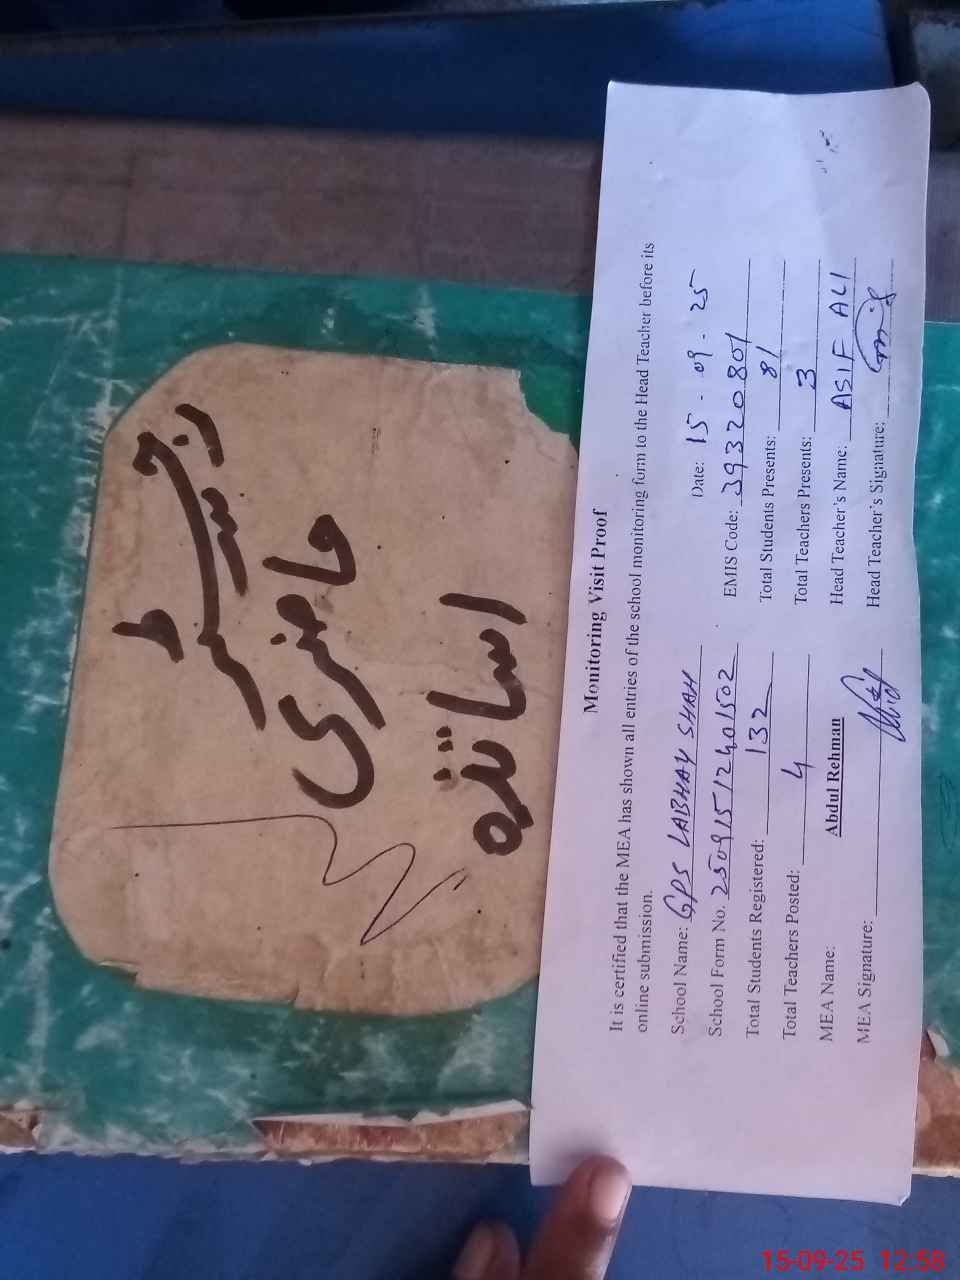 رجسٹر
حاضری
اساتذہ
Monitoring Visit Proof
It is certified that the MEA has shown all entries of the school monitoring form to the Head Teacher before its
online submission.
Date: 15-09-25
School Name: GPS LABHAY SHAH
EMIS Code: 39320801
School Form No. 25091512401502
Total Students Presents: 81
Total Students Registered: 132
Total Teachers Presents: 3
Total Teachers Posted: 4
Head Teacher's Name: ASIF ALI
MEA Name: Abdul Rehman
Head Teacher's Signature:
MEA Signature:
15-09-25 12:58